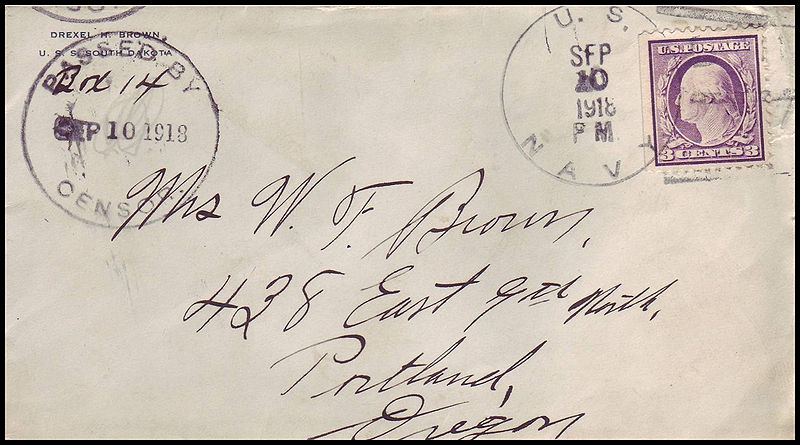 DREXEL H. BROWN,
U. S. S. SOUTH DAKOTA
Box 14
PASSED BY
SEP 10 1918
CENSOR
U. S.
SEP
10
1918
P M.
NAVY
U.S. POSTAGE
3 CENTS 3
Mrs W. F. Brown,
438 East 9th North,
Portland,
Oregon